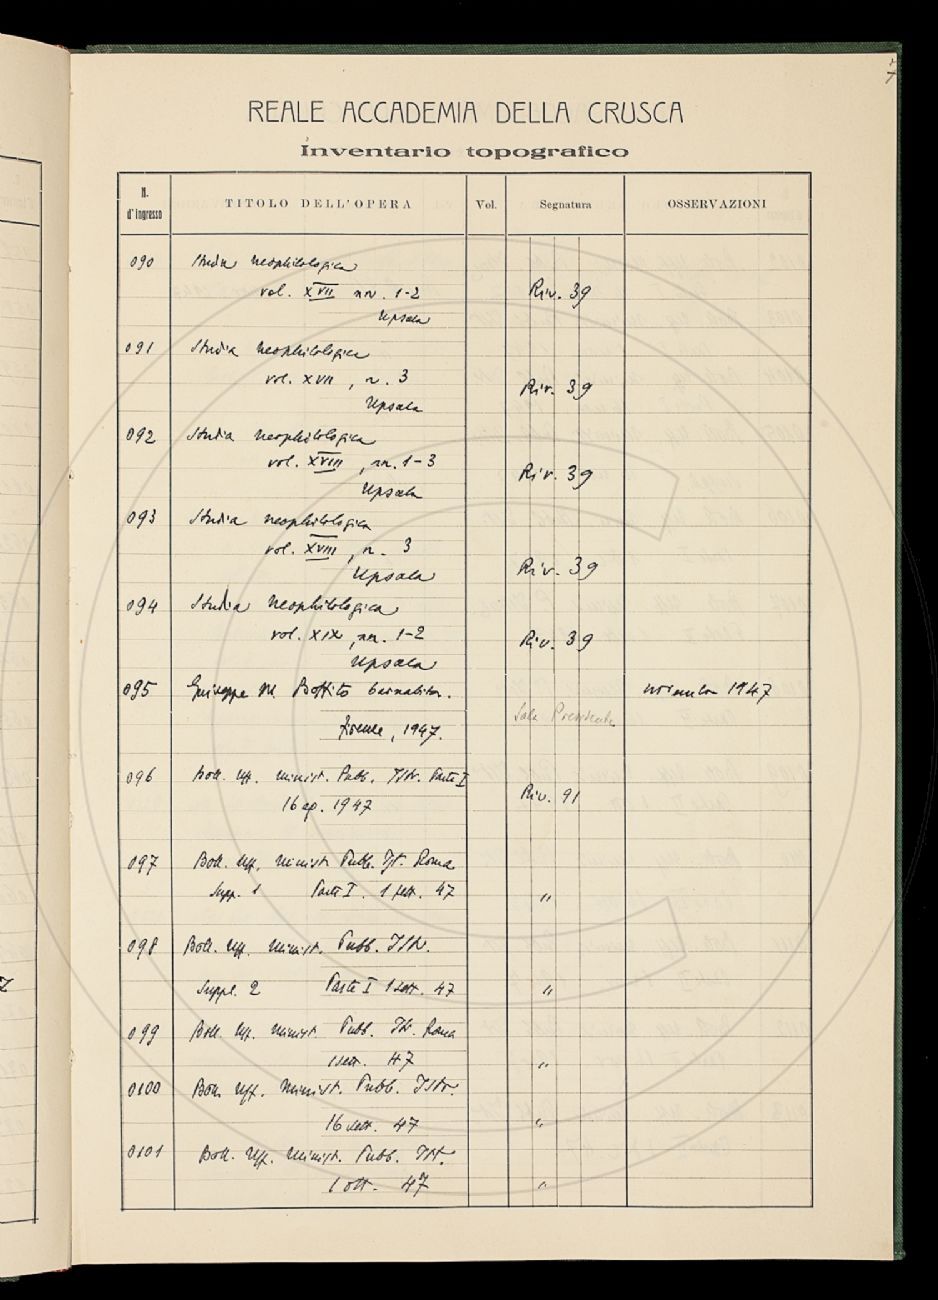 7
REALE ACCADEMIA DELLA CRUSCA
inventario topografico
N. d'ingresso TITOLO DELL'OPERA Vol. Segnatura OSSERVAZIONI
090 Studia neophilologica
vol. XVII nn. 1-2 Riv. 39
Upsala
091 Studia neophilologica
vol. XVII, n. 3 Riv. 39
Upsala
092 Studia neophilologica
vol. XVIII, nn. 1-3 Riv. 39
Upsala
093 Studia neophilologica
vol. XVIII, n. 3 Riv. 39
Upsala
094 Studia neophilologica
vol. XIX, nn. 1-2 Riv. 39
Upsala
095 Giuseppe M. Boffito barnabita. novembre 1947
Firenze, 1947. Sala Presidente
096 Boll. Uff. Minist. Pubb. Istr. Parte I
16 ag. 1947 Riv. 91
097 Boll. Uff. Minist. Pubb. Ist. Roma
Supp. 1 Parte I. 1 sett. 47 "
098 Boll. Uff. Minist. Pubb. Istr.
Suppl. 2 Parte I 1 sett. 47 "
099 Boll. Uff. Minist. Pubb. Istr. Roma
1 sett. 47 "
0100 Boll. Uff. Minist. Pubb. Istr.
16 sett. 47 "
0101 Boll. Uff. Minist. Pubb. Ist.
1 ott. 47 "